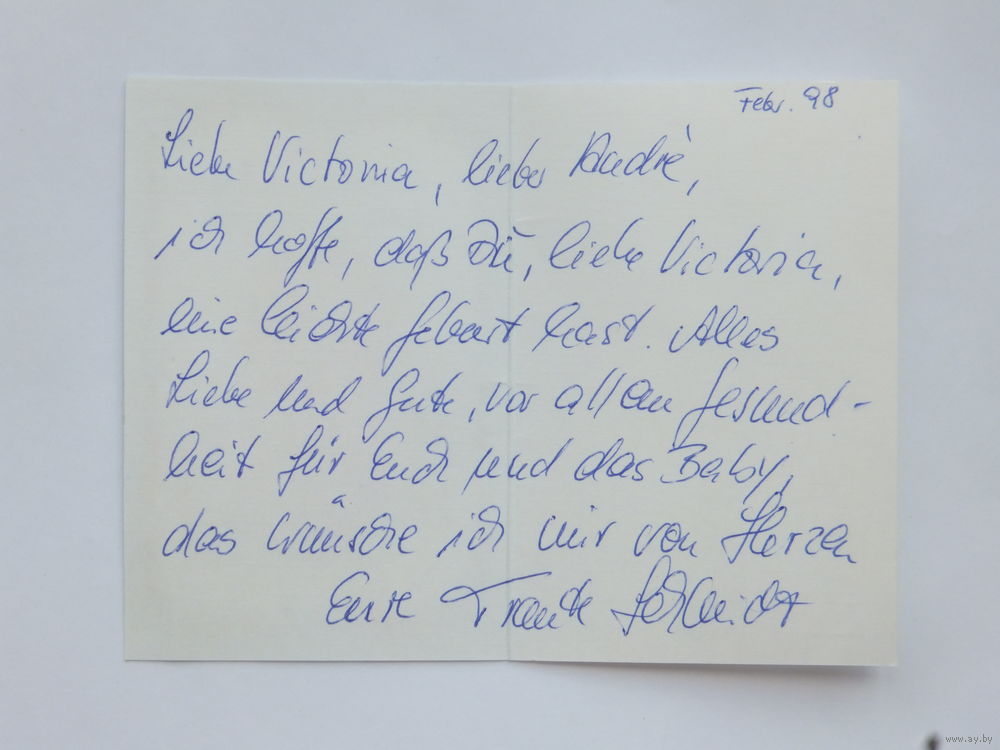 Febr. 98
Liebe Victoria, lieber André,
ich hoffe, daß Du, liebe Victoria,
eine leichte Geburt hast. Alles
Liebe und Gute, vor allem Gesund-
heit für Euch und das Baby,
das wünsche ich mir von Herzen
Eure Traute
www.ay.by